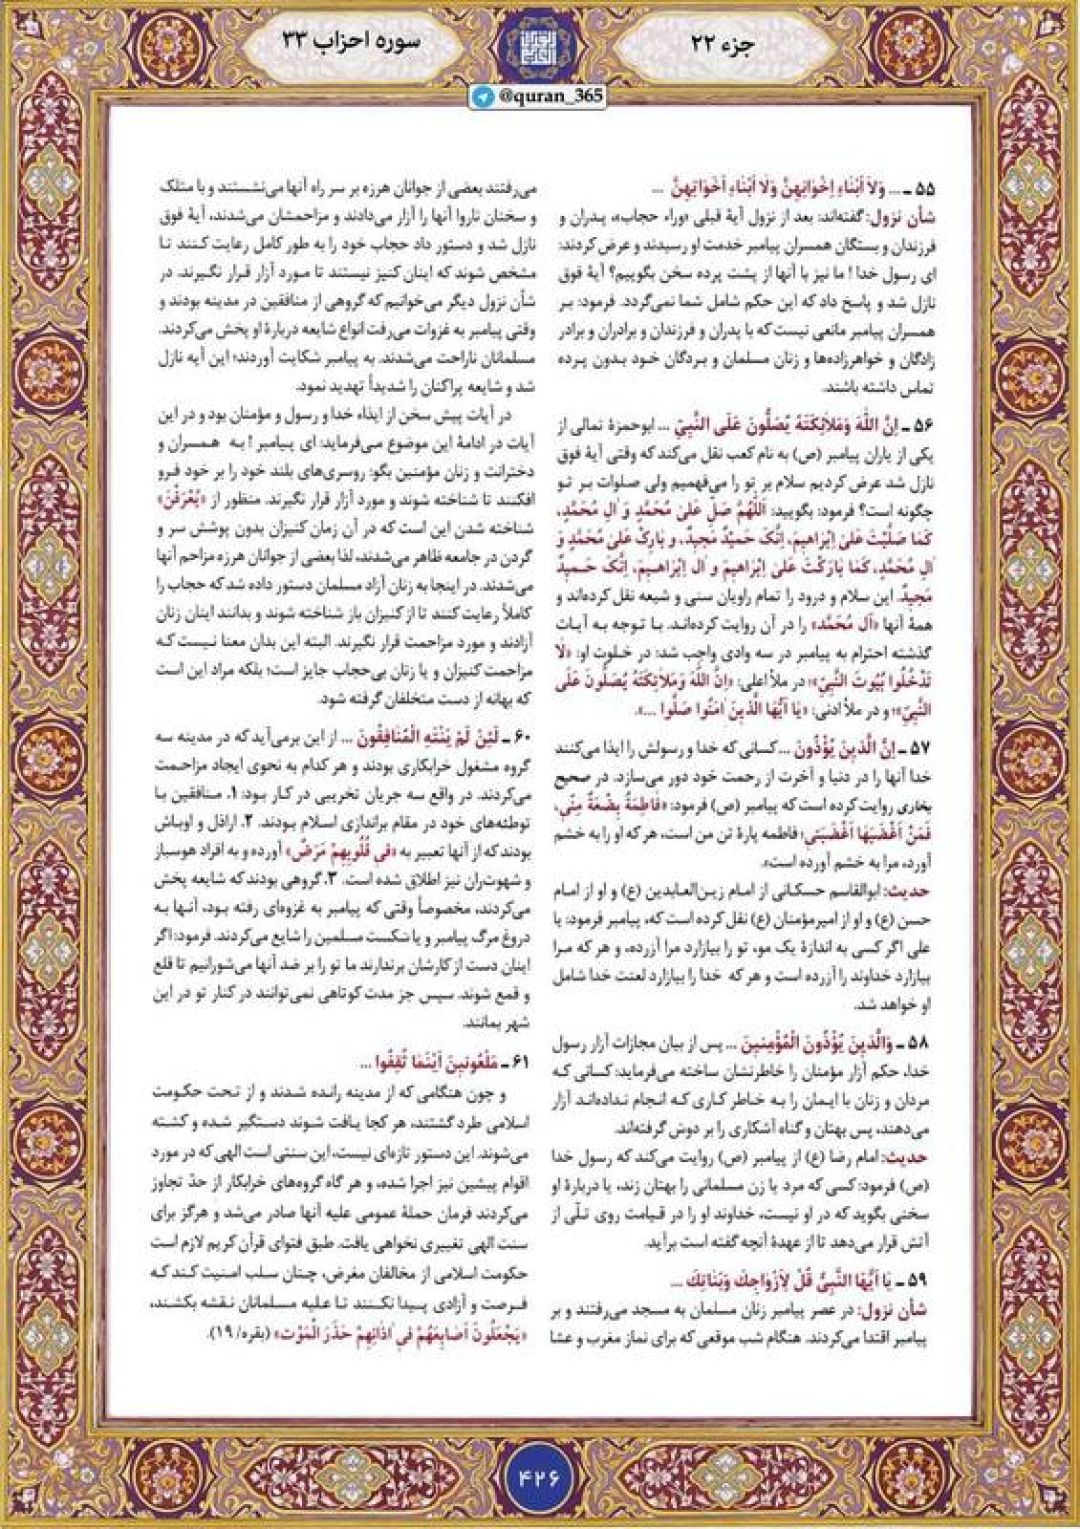 جزء ۲۲
سوره احزاب ۳۳
@quran_365
۵۵ ـ ... وَلاَ أَبْنَاءِ إِخْوَانِهِنَّ وَلَا أَبْنَاءِ أَخَوَاتِهِنَّ ...
شأن نزول: گفته‌اند: بعد از نزول آیهٔ قبلی «وراء حجاب»، پدران و
فرزندان و بستگان همسران پیامبر خدمت او رسیدند و عرض کردند:
ای رسول خدا! ما نیز با آنها از پشت پرده سخن بگوییم؟ آیهٔ فوق
نازل شد و پاسخ داد که این حکم شامل شما نمی‌گردد. فرمود: بر
همسران پیامبر مانعی نیست که با پدران و فرزندان و برادران و برادر
زادگان و خواهرزاده‌ها و زنان مسلمان و بردگان خود بدون پرده
تماس داشته باشند.
۵۶ ـ اِنَّ اللّٰهَ وَمَلَائِکَتَهُ یُصَلُّونَ عَلَی النَّبِیِّ ... ابوحمزهٔ ثمالی از
یکی از یاران پیامبر (ص) به نام کعب نقل می‌کند که وقتی آیهٔ فوق
نازل شد عرض کردیم سلام بر تو را می‌فهمیم ولی صلوات بر تو
چگونه است؟ فرمود: بگویید: اَللّٰهُمَّ صَلِّ عَلیٰ مُحَمَّدٍ وَ اٰلِ مُحَمَّدٍ،
کَمَا صَلَّیْتَ عَلیٰ اِبْرَاهِیمَ، اِنَّکَ حَمِیدٌ مَجِیدٌ، وَ بَارِکْ عَلیٰ مُحَمَّدٍ وَ
اٰلِ مُحَمَّدٍ، کَمَا بَارَکْتَ عَلیٰ اِبْرَاهِیمَ وَ اٰلِ اِبْرَاهِیمَ، اِنَّکَ حَمِیدٌ
مَجِیدٌ. این سلام و درود را تمام راویان سنی و شیعه نقل کرده‌اند و
همهٔ آنها «اٰلِ مُحَمَّد» را در آن روایت کرده‌اند. با توجه به آیات
گذشته احترام به پیامبر در سه وادی واجب شد: در خلوت او: «لَا
تَدْخُلُوا بُیُوتَ النَّبِیِّ»؛ در ملأ اعلی: «اِنَّ اللّٰهَ وَمَلَائِکَتَهُ یُصَلُّونَ عَلَی
النَّبِیِّ»؛ و در ملأ ادنی: «یَا اَیُّهَا الَّذِینَ اٰمَنُوا صَلُّوا ...».
۵۷ ـ اِنَّ الَّذِینَ یُؤْذُونَ ... کسانی که خدا و رسولش را ایذا می‌کنند
خدا آنها را در دنیا و آخرت از رحمت خود دور می‌سازد. در صحیح
بخاری روایت کرده است که پیامبر (ص) فرمود: «فَاطِمَةُ بِضْعَةٌ مِنِّی،
فَمَنْ اَغْضَبَهَا اَغْضَبَنِی؛ فاطمه پارهٔ تن من است، هر که او را به خشم
آورد، مرا به خشم آورده است».
حدیث: ابوالقاسم حسکانی از امام زین‌العابدین (ع) و او از امام
حسن (ع) و او از امیرمؤمنان (ع) نقل کرده است که، پیامبر فرمود: یا
علی اگر کسی به اندازهٔ یک مو، تو را بیازارد مرا آزرده، و هر که مرا
بیازارد خداوند را آزرده است و هر که خدا را بیازارد لعنت خدا شامل
او خواهد شد.
۵۸ ـ وَالَّذِینَ یُؤْذُونَ الْمُؤْمِنِینَ ... پس از بیان مجازات آزار رسول
خدا، حکم آزار مؤمنان را خاطرنشان ساخته می‌فرماید: کسانی که
مردان و زنان با ایمان را به خاطر کاری که انجام نداده‌اند آزار
می‌دهند، پس بهتان و گناه آشکاری را بر دوش گرفته‌اند.
حدیث: امام رضا (ع) از پیامبر (ص) روایت می‌کند که رسول خدا
(ص) فرمود: کسی که مرد یا زن مسلمانی را بهتان زند، یا دربارهٔ او
سخنی بگوید که در او نیست، خداوند او را در قیامت روی تلّی از
آتش قرار می‌دهد تا از عهدهٔ آنچه گفته است برآید.
۵۹ ـ یَا اَیُّهَا النَّبِیُّ قُلْ لِاَزْوَاجِكَ وَبَنَاتِكَ ...
شأن نزول: در عصر پیامبر زنان مسلمان به مسجد می‌رفتند و بر
پیامبر اقتدا می‌کردند. هنگام شب موقعی که برای نماز مغرب و عشا
می‌رفتند بعضی از جوانان هرزه بر سر راه آنها می‌نشستند و با متلک
و سخنان ناروا آنها را آزار می‌دادند و مزاحمشان می‌شدند، آیهٔ فوق
نازل شد و دستور داد حجاب خود را به طور کامل رعایت کنند تا
مشخص شوند که اینان کنیز نیستند تا مورد آزار قرار نگیرند. در
شأن نزول دیگر می‌خوانیم که گروهی از منافقین در مدینه بودند و
وقتی پیامبر به غزوات می‌رفت انواع شایعه دربارهٔ او پخش می‌کردند.
مسلمانان ناراحت می‌شدند. به پیامبر شکایت آوردند؛ این آیه نازل
شد و شایعه پراکنان را شدیداً تهدید نمود.
در آیات پیش سخن از ایذاء خدا و رسول و مؤمنان بود و در این
آیات در ادامهٔ این موضوع می‌فرماید: ای پیامبر! به همسران و
دخترانت و زنان مؤمنین بگو: روسری‌های بلند خود را بر خود فرو
افکنند تا شناخته شوند و مورد آزار قرار نگیرند. منظور از «یُعْرَفْنَ»
شناخته شدن این است که در آن زمان کنیزان بدون پوشش سر و
گردن در جامعه ظاهر می‌شدند، لذا بعضی از جوانان هرزه مزاحم آنها
می‌شدند. در اینجا به زنان آزاد مسلمان دستور داده شد که حجاب را
کاملاً رعایت کنند تا از کنیزان باز شناخته شوند و بدانند اینان زنان
آزادند و مورد مزاحمت قرار نگیرند. البته این بدان معنا نیست که
مزاحمت کنیزان و یا زنان بی‌حجاب جایز است؛ بلکه مراد این است
که بهانه از دست متخلفان گرفته شود.
۶۰ ـ لَئِنْ لَمْ یَنْتَهِ الْمُنَافِقُونَ ... از این برمی‌آید که در مدینه سه
گروه مشغول خرابکاری بودند و هر کدام به نحوی ایجاد مزاحمت
می‌کردند. در واقع سه جریان تخریبی در کار بود: ۱. منافقین با
توطئه‌های خود در مقام براندازی اسلام بودند. ۲. اراذل و اوباش
بودند که از آنها تعبیر به «فِی قُلُوبِهِمْ مَرَضٌ» آورده و به افراد هوسباز
و شهوت‌ران نیز اطلاق شده است. ۳. گروهی بودند که شایعه پخش
می‌کردند، مخصوصاً وقتی که پیامبر به غزوه‌ای رفته بود، آنها به
دروغ مرگ پیامبر و یا شکست مسلمین را شایع می‌کردند. فرمود: اگر
اینان دست از کارشان برندارند ما تو را بر ضد آنها می‌شورانیم تا قلع
و قمع شوند. سپس جز مدت کوتاهی نمی‌توانند در کنار تو در این
شهر بمانند.
۶۱ ـ مَلْعُونِینَ اَیْنَمَا ثُقِفُوا ...
و چون هنگامی که از مدینه رانده شدند و از تحت حکومت
اسلامی طرد گشتند، هر کجا یافت شوند دستگیر شده و کشته
می‌شوند. این دستور تازه‌ای نیست، این سنتی است الهی که در مورد
اقوام پیشین نیز اجرا شده، و هر گاه گروه‌های خرابکار از حدّ تجاوز
می‌کردند فرمان حملهٔ عمومی علیه آنها صادر می‌شد و هرگز برای
سنت الهی تغییری نخواهی یافت. طبق فتوای قرآن کریم لازم است
حکومت اسلامی از مخالفان مغرض، چنان سلب امنیت کند که
فرصت و آزادی پیدا نکنند تا علیه مسلمانان نقشه بکشند،
«یَجْعَلُونَ اَصَابِعَهُمْ فِی اٰذَانِهِمْ حَذَرَ الْمَوْت» (بقره/ ۱۹).
۴۲۶